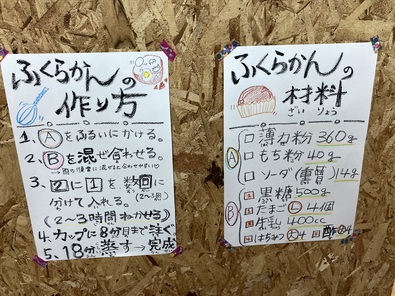 ふくらかんの
作り方
1、Ⓐをふるいにかける。
2、Ⓑを混ぜ合わせる。
3、2に1を数回に
(2〜3回)
分けて入れる。
(2〜3時間ねかせる)
4、カップに8分目まで注ぐ
5、18分蒸す→完成
ふくらかんの
材料
ざいりょう
Ⓐ
薄力粉 360g
もち粉 40g
ソーダ(重曹) 14g
Ⓑ
黒糖 500g
たまご Ⓛ 4個
400cc
はちみつ 大4
酢 4